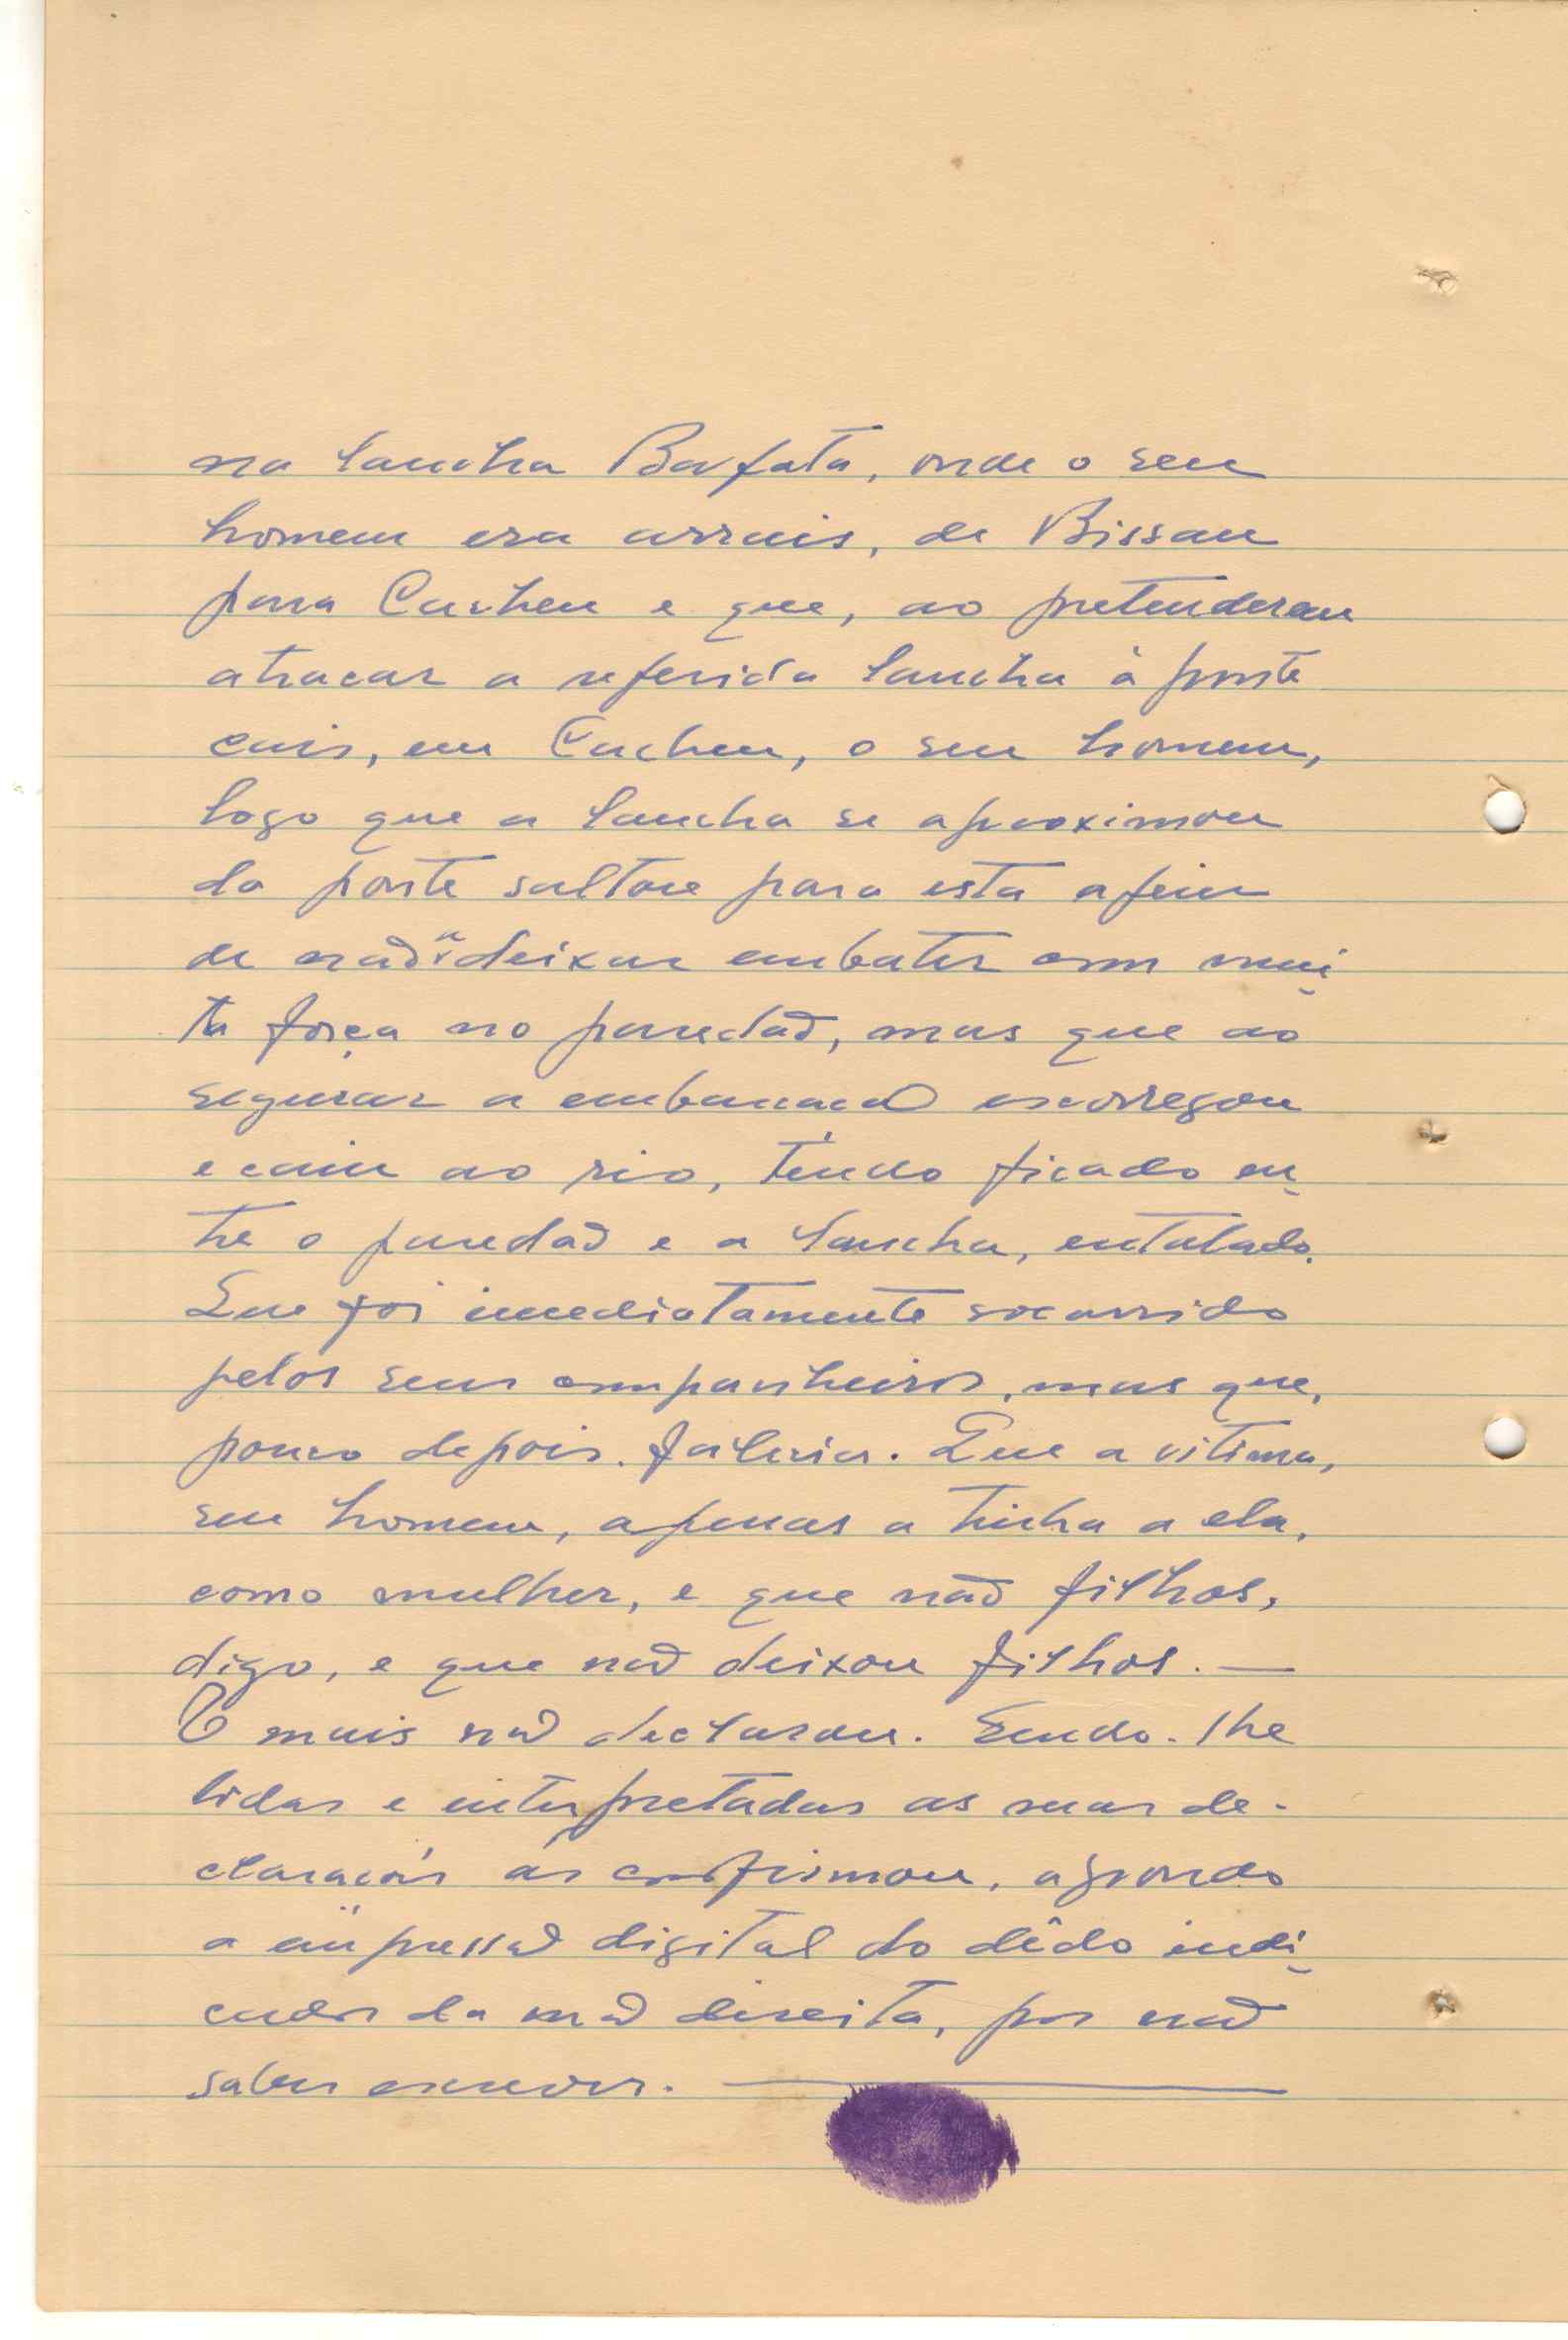 na lancha Bafatá, onde o seu
homem era arrais, de Bissau
para Cacheu e que, ao pretenderem
atracar a referida lancha à ponte
cais, em Cacheu, o seu homem,
logo que a lancha se aproximou
da ponte saltou para esta afim
de não a deixar embater com mui-
ta força no paredão, mas que ao
segurar a embarcação escorregou
e caiu ao rio, tendo ficado en-
tre o paredão e a lancha, entalado.
Que foi imediatamente socorrido
pelos seus companheiros, mas que,
pouco depois, falecia. Que a vítima,
seu homem, apenas a tinha a ela,
como mulher, e que não filhos,
digo, e que não deixou filhos. —
E mais não declarou. Sendo-lhe
lidas e interpretadas as suas de-
clarações as confirmou, apondo
a impressão digital do dêdo indi-
cador da mão direita, por não
saber escrever. —